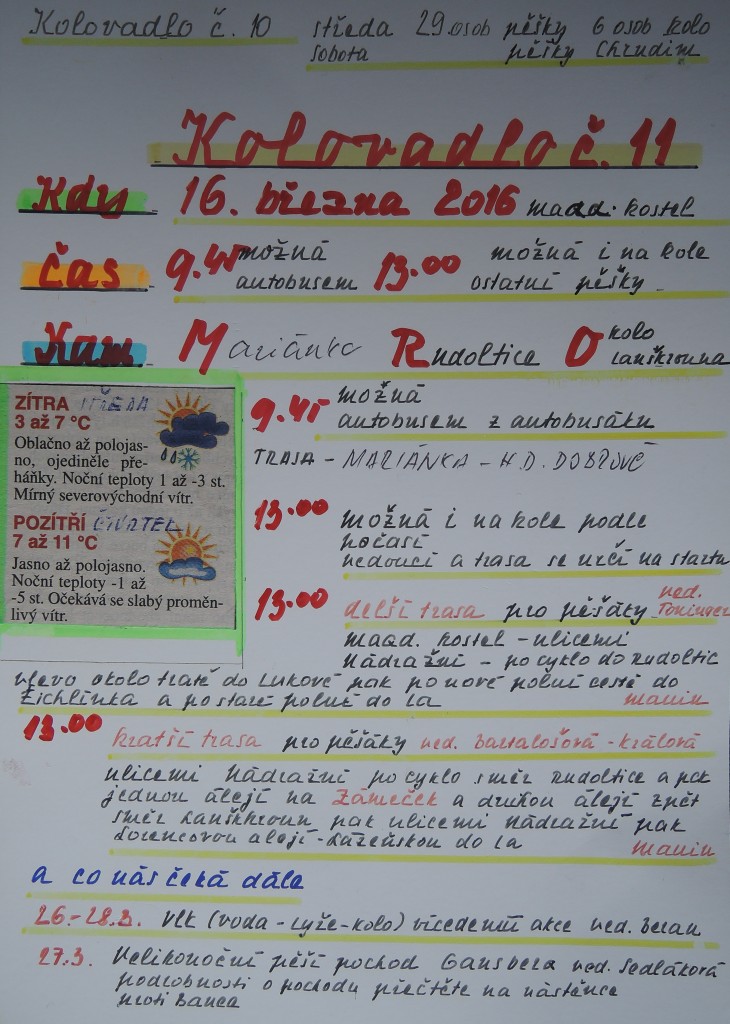 Kolovadlo č. 10 středa 29 osob pěšky 6 osob kolo
sobota pěšky Chrudim
Kolovadlo č. 11
Kdy 16. března 2016 magd. kostel
čas 9.45 možná autobusem 13.00 možná i na kole ostatní pěšky
Kam Mariánka Rudoltice Okolo Lanškrouna
ZÍTRA STŘEDA
3 až 7 °C
Oblačno až polojas-
no, ojediněle pře-
háňky. Noční teploty 1 až -3 st.
Mírný severovýchodní vítr.
POZÍTŘÍ ČTVRTEK
7 až 11 °C
Jasno až polojasno.
Noční teploty -1 až
-5 st. Očekává se slabý proměn-
livý vítr.
9.45 možná
autobusem z autobusáku
TRASA - MARIÁNKA - H.D. DOBROVĚ
13.00 možná i na kole podle
počasí
vedoucí a trasa se určí na startu
13.00 delší trasa pro pěšáky ved.
magd. kostel - ulicemi
Nádražní - po cyklo do Rudoltic
vlevo okolo tratě do Lukové pak po nové polní cestě do
Žichlínka a po staré polní do La
13.00
kratší trasa pro pěšáky ved. Bartalošová - Králová
ulicemi Nádražní po cyklo směr Rudoltice a pak
jednou álejí na Zámeček a druhou álejí zpět
směr Lanškroun pak ulicemi Nádražní pak
Lorencovou alejí - Lázeňskou do La
a co nás čeká dále
26.-28.3. VLK (voda - lyže - kolo) vícedenní akce ved. Beran
27.3. Velikonoční pěší pochod Gansberg ved. Sedláková
podrobnosti o pochodu přečtěte na nástěnce
proti Banca